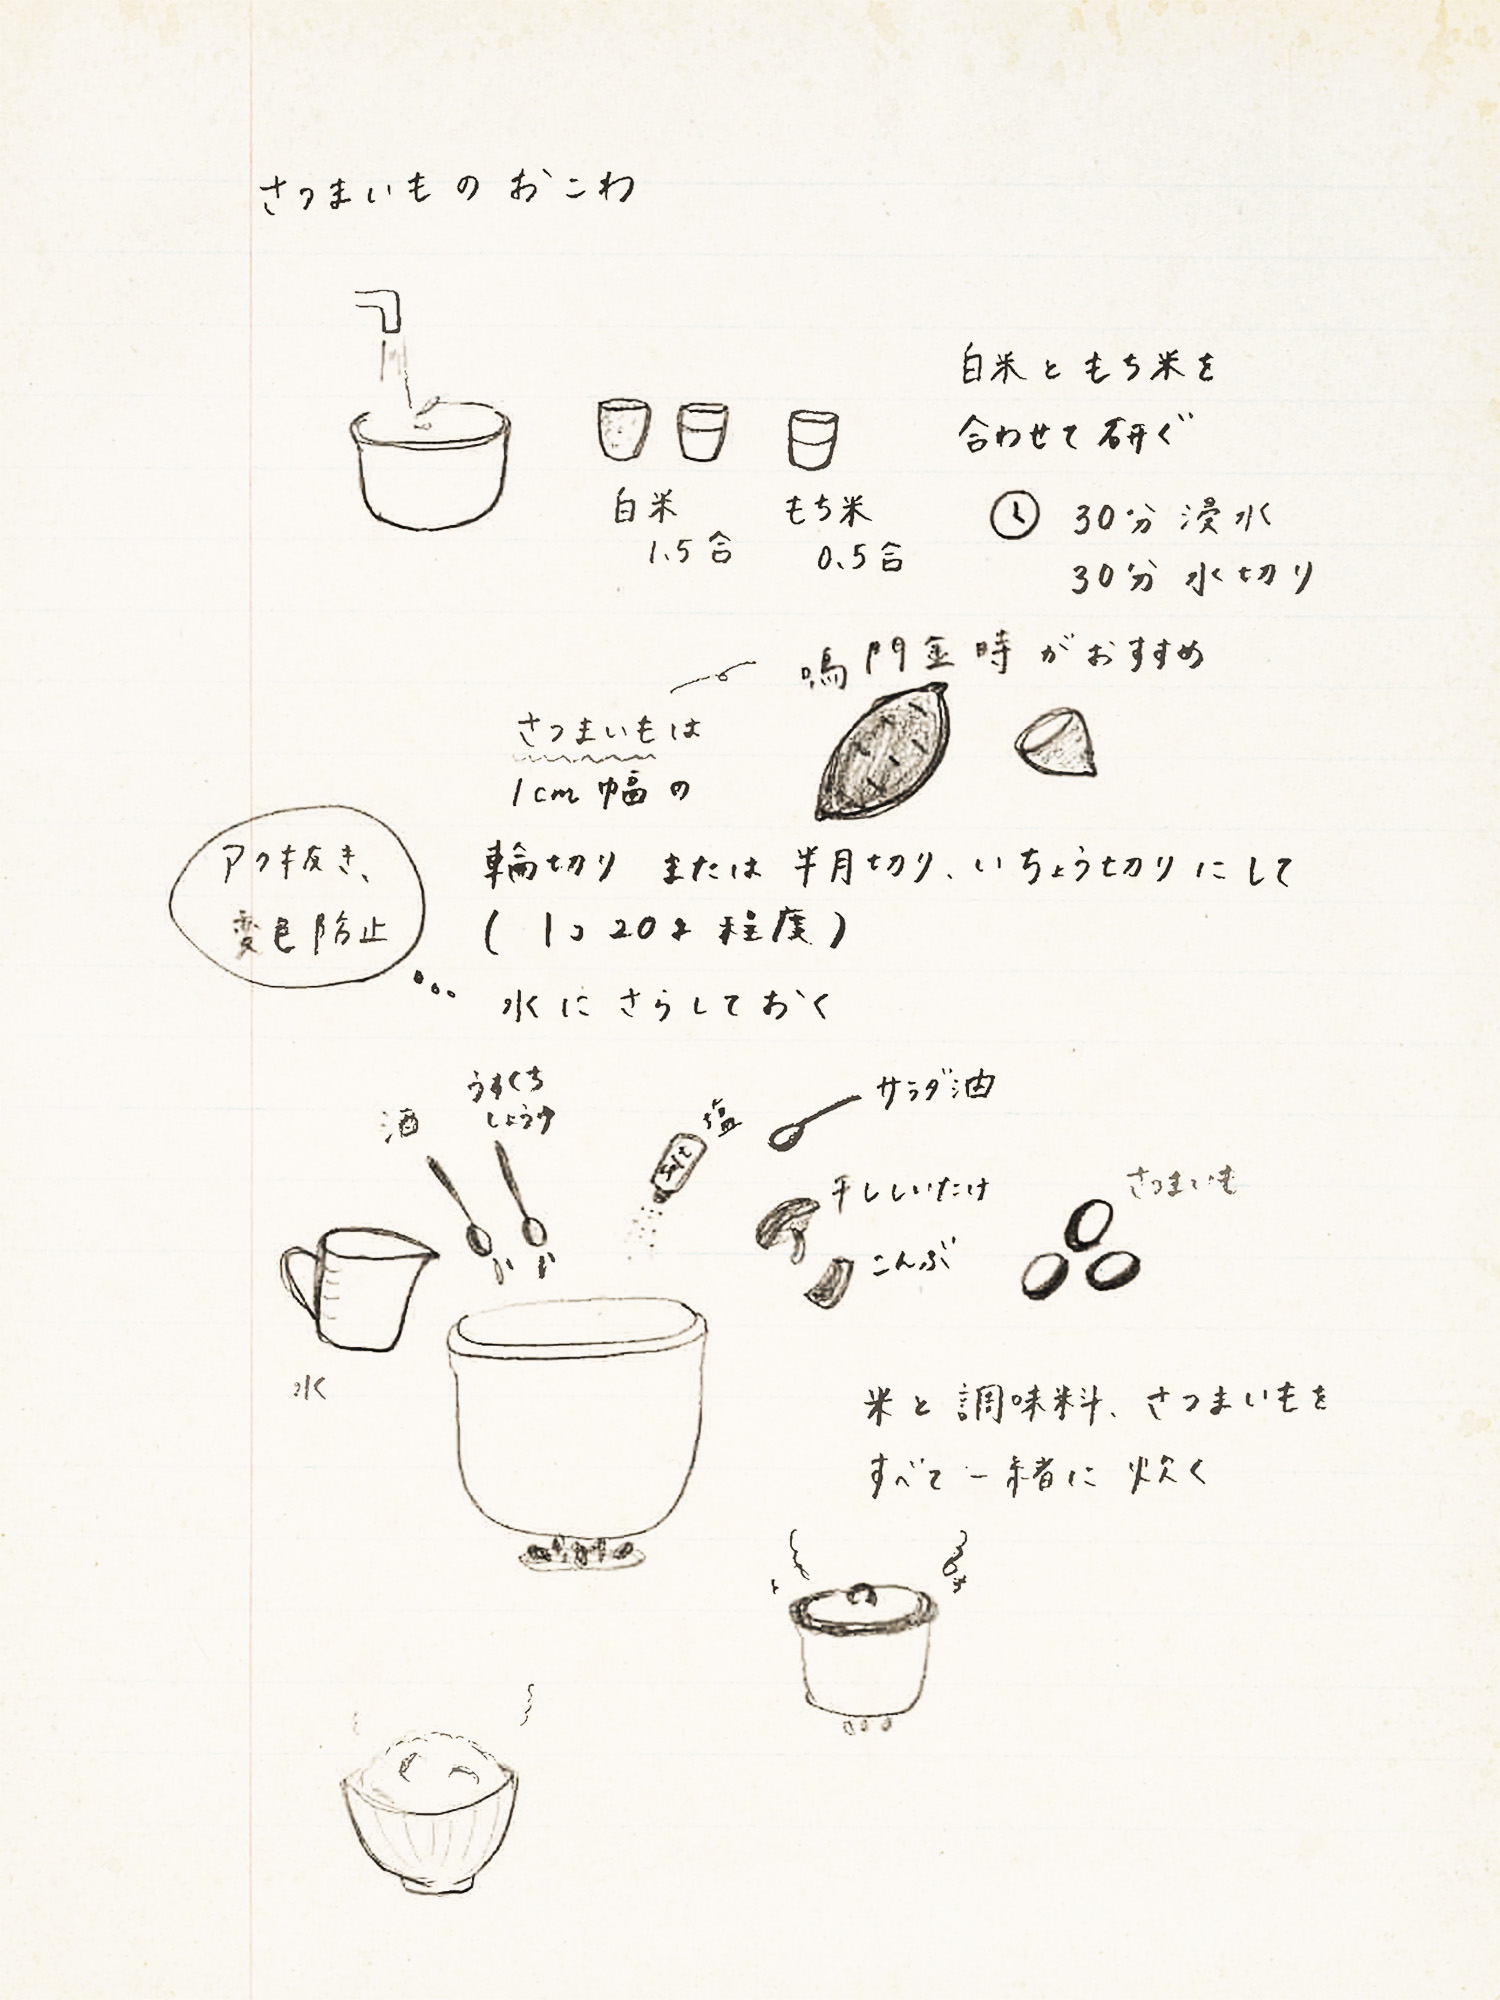 さつまいものおこわ
白米ともち米を
合わせて研ぐ
白米
1.5合
もち米
0.5合
30分 浸水
30分 水切り
鳴門金時がおすすめ
さつまいもは
1cm幅の
輪切り または 半月切り、いちょう切りにして
(1コ20g程度)
アク抜き、
変色防止
水にさらしておく
酒
うすくち
しょうゆ
塩
Salt
サラダ油
干ししいたけ
こんぶ
さつまいも
水
米と調味料、さつまいもを
すべて一緒に炊く